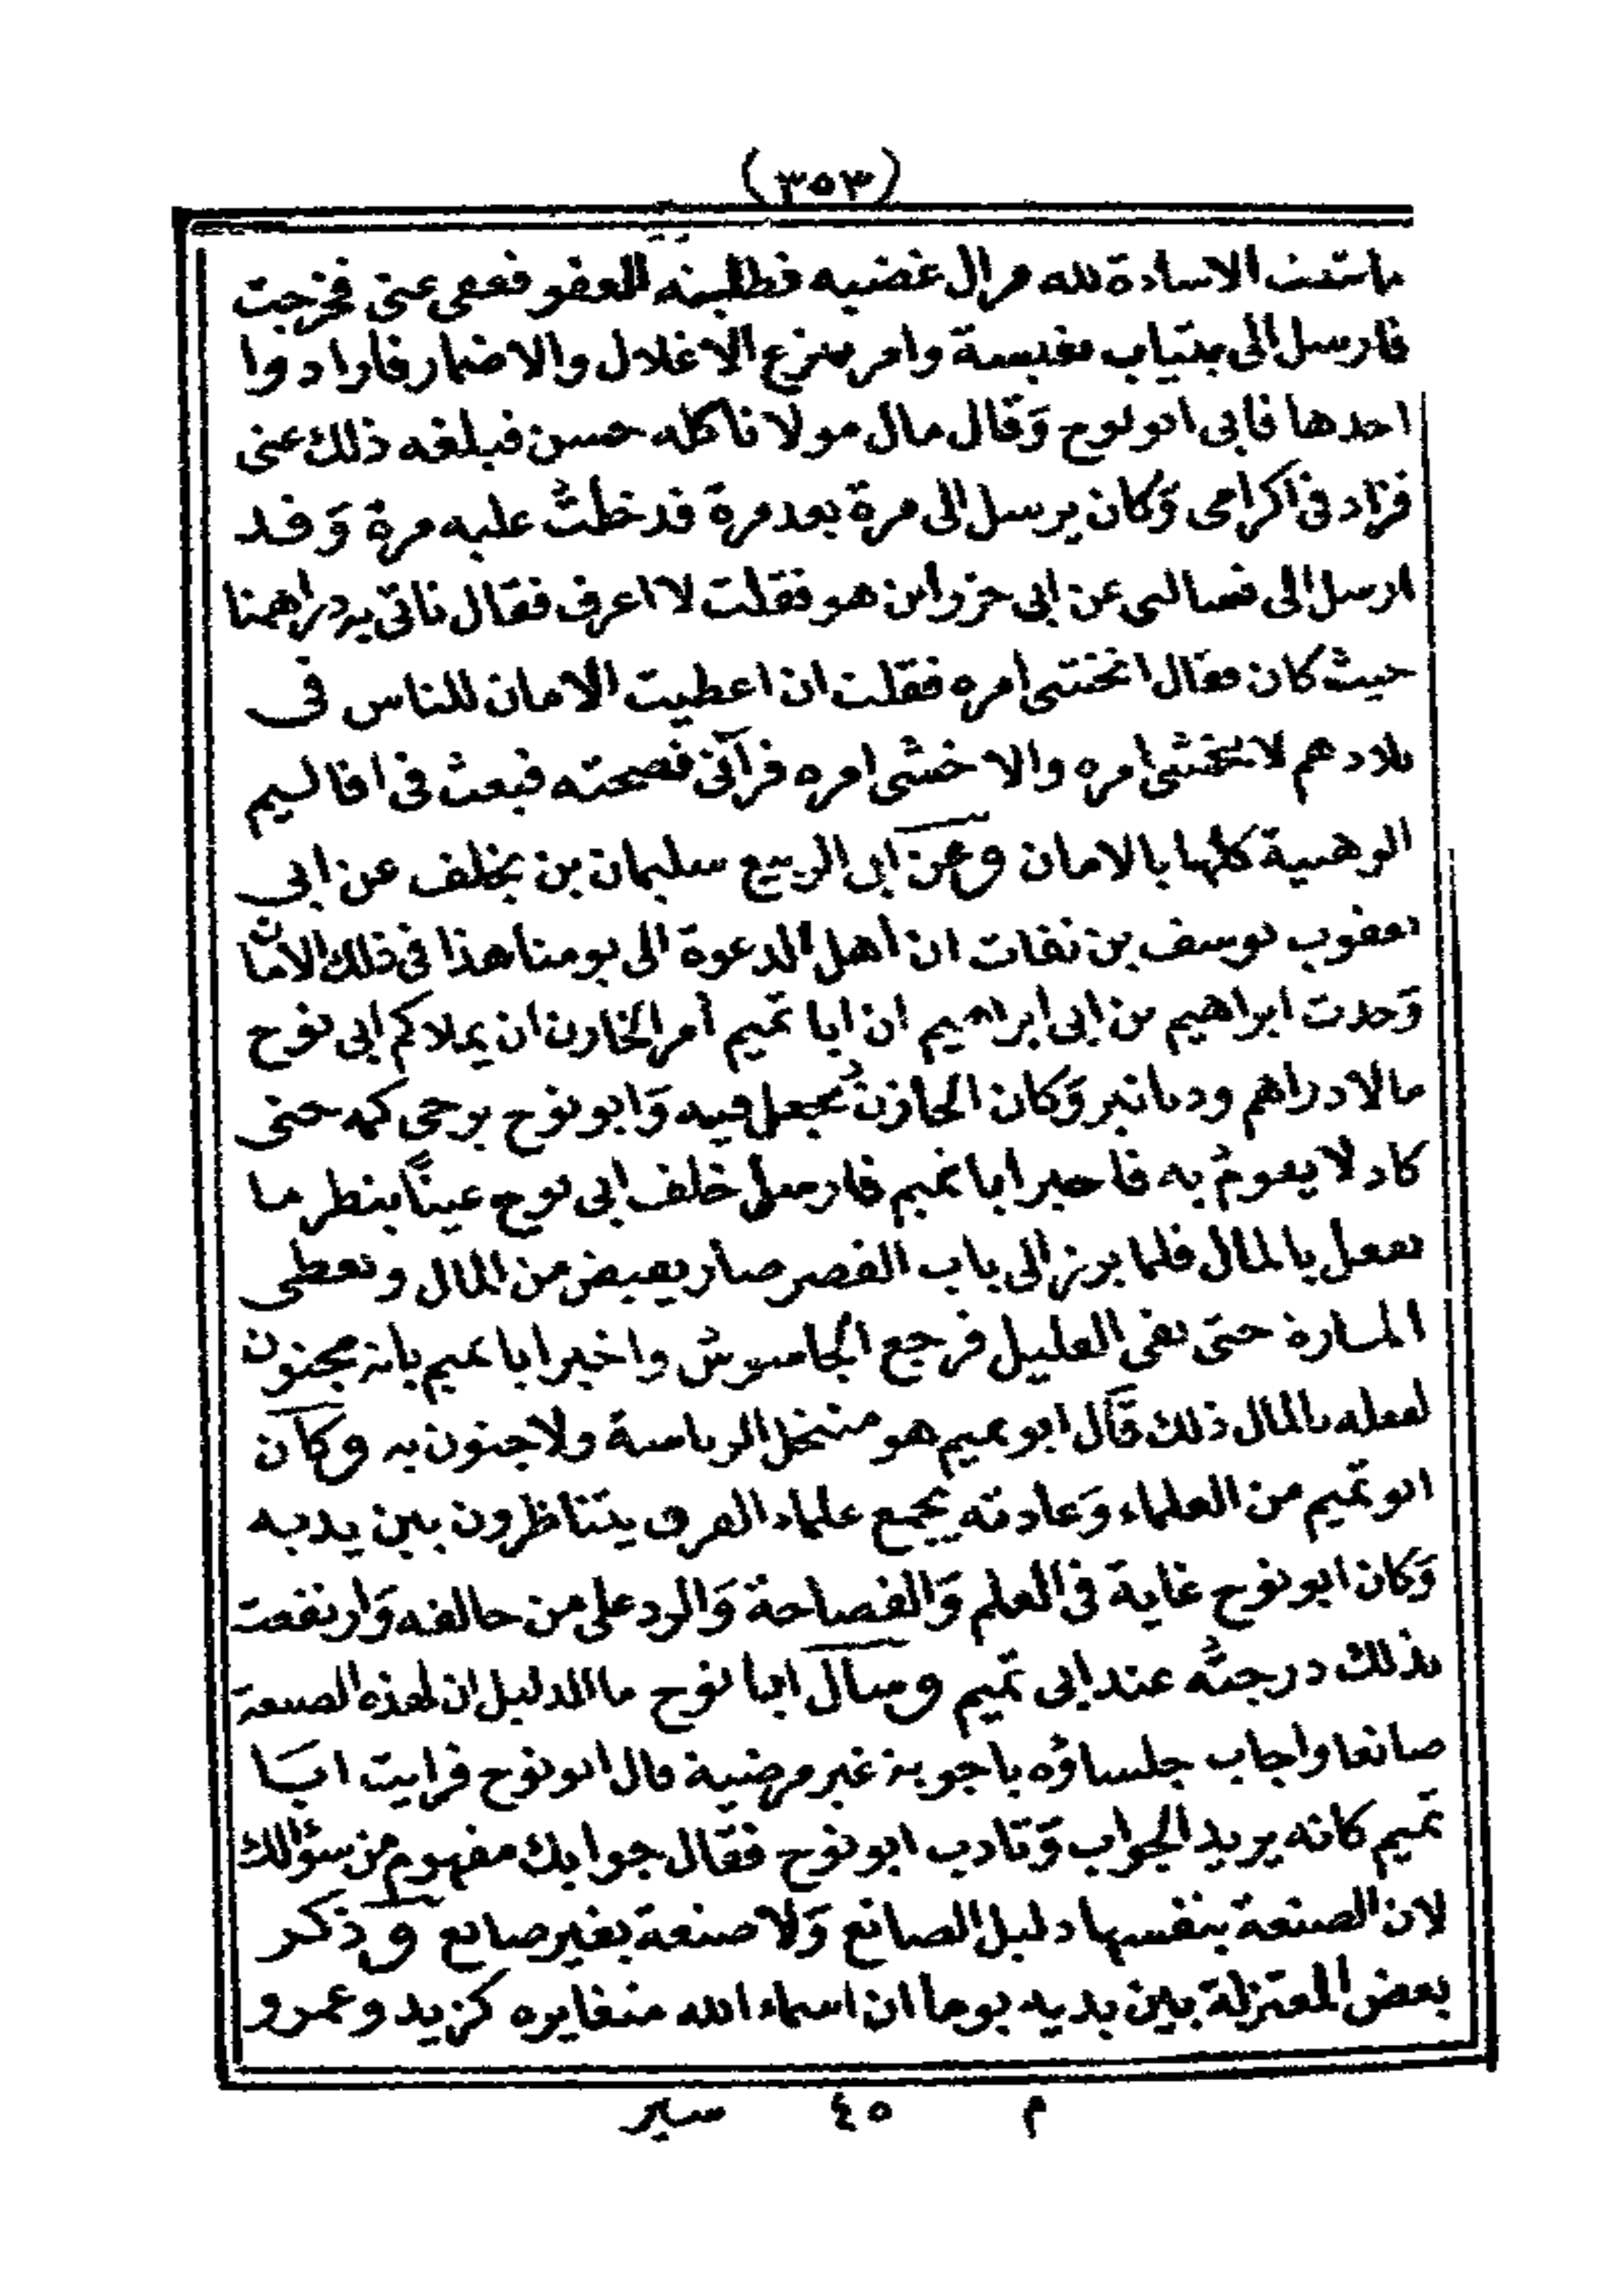 (٣٥٣)
الاساءة لله فزال غضبه فطلبته العفو فعفى عنى فخرجت
فارسل الى بثياب نفيسة وامر بنزع الاغلال والاضمار فارادوا
احدها فابى ابو نوح وَقال مال مولانا كله حسن فبلغه ذلك عنى
فزاد فى اكرامى وَكان يرسل الى مرة بعد مرة فدخلتُ عليه مرة وَقد
ارسل الى فسالنى عن ابى خزر أين هو فقلت لا اعرف فقال ناتى به دراهمنا
حيث كان فقال اتختشى امره فقلت ان اعطيت الامان للناس فى
بلادهم لا تختشى امره والا خشى امره فرآنى نصحته فبعث فى اقاليم
الوهبية كلها بالامان وعن ابى الربيع سليمان بن يخلف عن ابى
يعقوب يوسف بن نفات ان اهل الدعوة الى يومنا هذا فى ذلك الامان
وَحدث ابراهيم بن ابى ابراهيم ان ابا تميم أمر الخازن ان يملا كم ابى نوح
مالا دراهم ودنانير وَكان الخازنُ يجعل فيه وَابو نوح يرخى كمه حتى
كاد لا يقومُ به فاخبر ابا تميم فارسل خلف ابى نوح عينًا ينظر ما
يفعل بالمال فلما برز الى باب القصر صار يقبض من المال ويعطى
المارة حتى بقى القليل فرجع الجاسوسُ واخبر ابا تميم بانه مجنون
لفعله بالمال ذلك قَال ابو تميم هو منتحل الرياسة ولا جنون به وكان
ابو تميم من العلماء وَعادته يجمع علماء الفرق يتناظرون بين يديه
وَكان ابو نوح غاية فى العلم وَالفصاحة وَالرد على من خالفه وَارتفعت
بذلك درجتُه عند ابى تميم وسال ابا نوح ما الدليل ان لهذه الصنعة
صانعا واجاب جلساؤه باجوبة غير مرضية قال ابو نوح فرايت ابَا
تميم كانه يريد الجواب وَتادب ابو نوح فقال جوابك مفهوم من سؤالك
لان الصنعة بنفسها دليل الصانع وَلا صنعة بغير صانع وذكر
بعض المعتزلة بين يديه يوما ان اسماء الله متغايره كزيد وعمرو
م ٤٥ سير